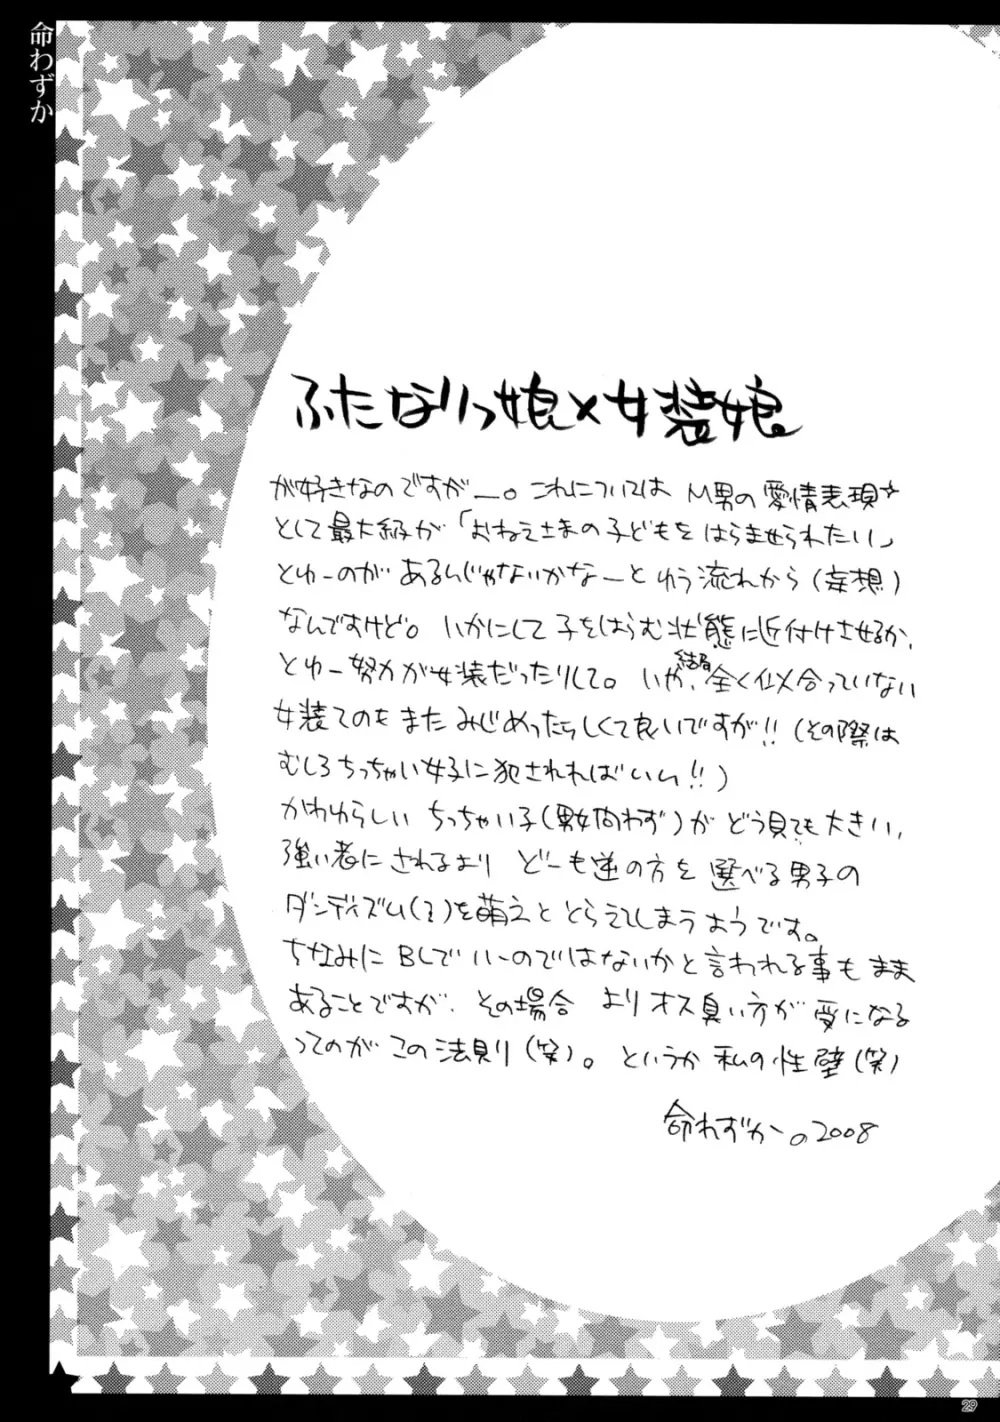 命わずか
ふたなりっ娘×女装娘
が好きなのですがー。これについては M男の愛情表現☆
として最大級が「おねえさまの子どもをはらませられたい」
とゆーのがあるんじゃないかなーとゆう流れから(妄想)
なんですけど。いかにして子をはらむ状態に近付けさせるか、
とゆー努力が女装だったりして。いや、結局全く似合っていない
女装てのもまたみじめったらしくて良いですが!!(その際は
むしろちっちゃい女子に犯されればいい!!)
かわゆらしいちっちゃい子(男女問わず)がどう見ても大きい、
強い者にされるより どーも逆の方を選べる男子の
ダンディズム(?)を萌えととらえてしまうようです。
ちなみにBLでいーのではないかと言われる事もまま
あることですが、その場合 よりオス臭い方が受になる
ってのがこの法則り(笑)。というか私の性壁(笑)
命わずか。2008
29